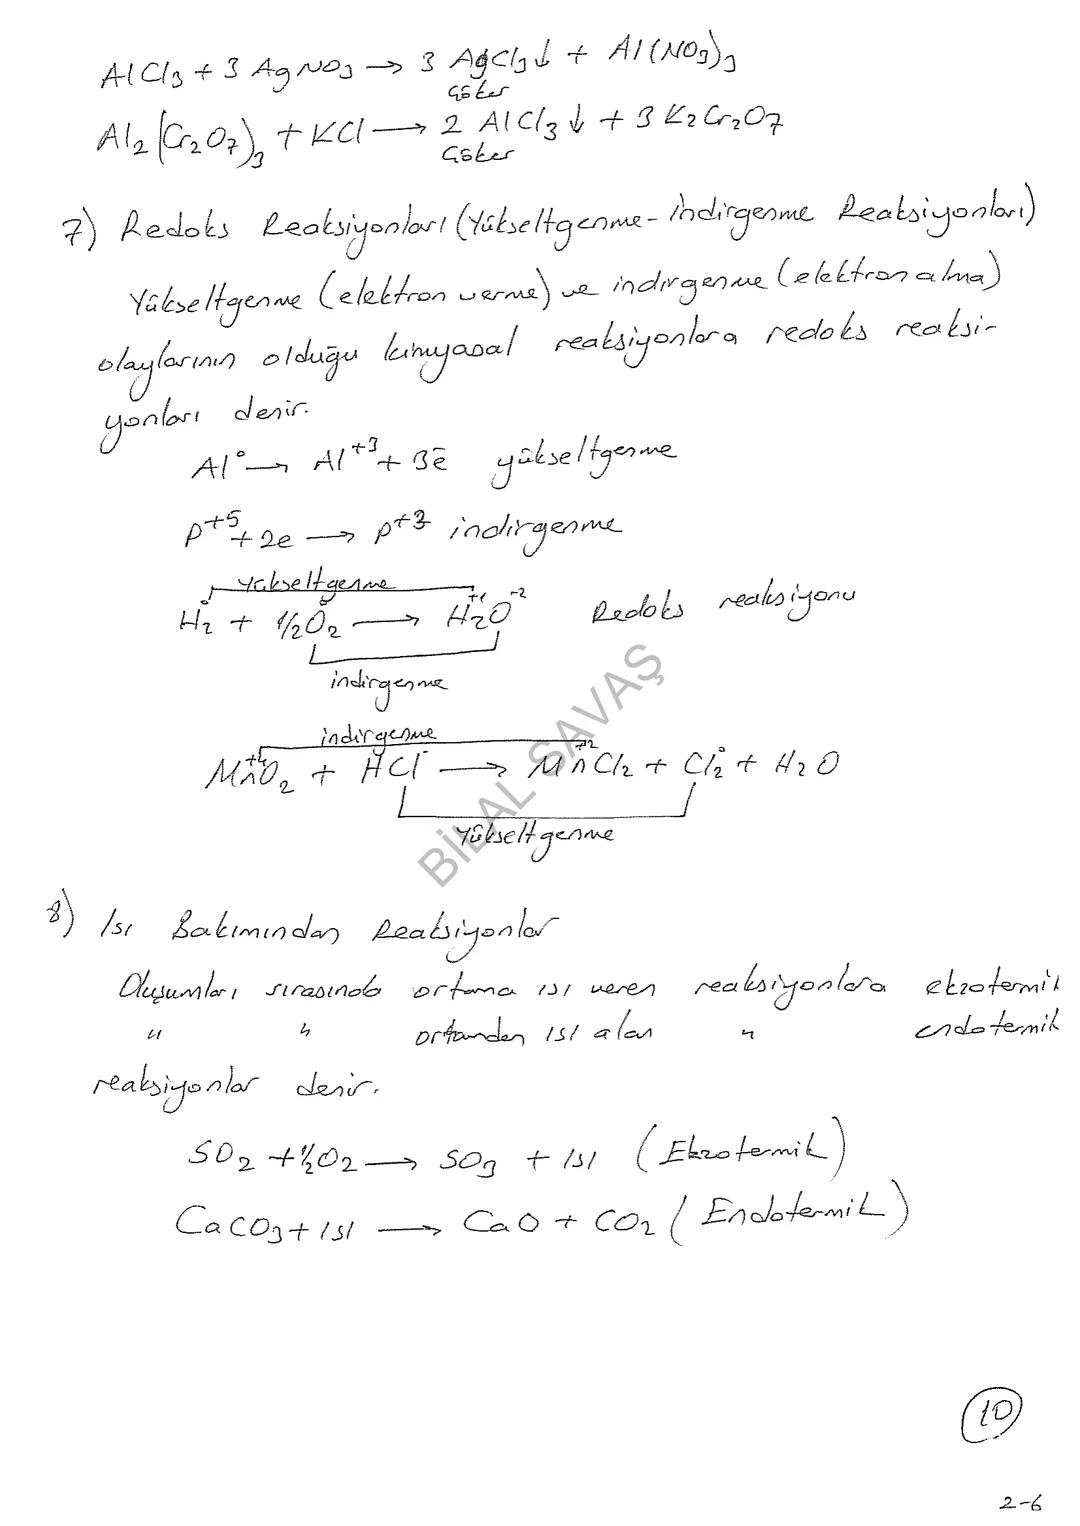 AlCl3 + 3 AgNO3 → 3 AgCl3↓ + Al(NO3)3
Çöker
Al2(Cr2O7)3 + KCl → 2 AlCl3↓ + 3 K2Cr2O7
Çöker
7) Redoks Reaksiyonları (Yükseltgenme-İndirgenme Reaksiyonları)
Yükseltgenme (elektron verme) ve indirgenme (elektron alma)
olaylarının olduğu kimyasal reaksiyonlara redoks reaksi-
yonları denir.
Al° → Al+3 + 3ē yükseltgenme
P+5 + 2e → P+3 indirgenme
yükseltgenme
H2° + 1/2 O2° → H2+1O-2 Redoks reaksiyonu
indirgenme
indirgenme
Mn+4O2 + HCl- → Mn+2Cl2 + Cl2° + H2O
Yükseltgenme
BİLAL SAVAŞ
8) Isı Bakımından Reaksiyonlar
Oluşumları sırasında ortama ısı veren reaksiyonlara ekzotermik
" " ortamdan ısı alan " endotermik
reaksiyonlar denir.
SO2 + 1/2 O2 → SO3 + ısı (Ekzotermik)
CaCO3 + ısı → CaO + CO2 (Endotermik)
10
2-6